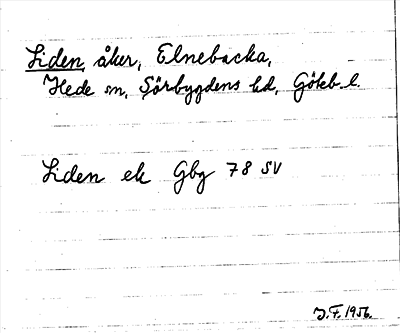 Liden, åker, Elnebacka,
Hede sn, Sörbygdens hd, Göteb. l.
Liden ek Gbg 78 SV
J.F. 1956.